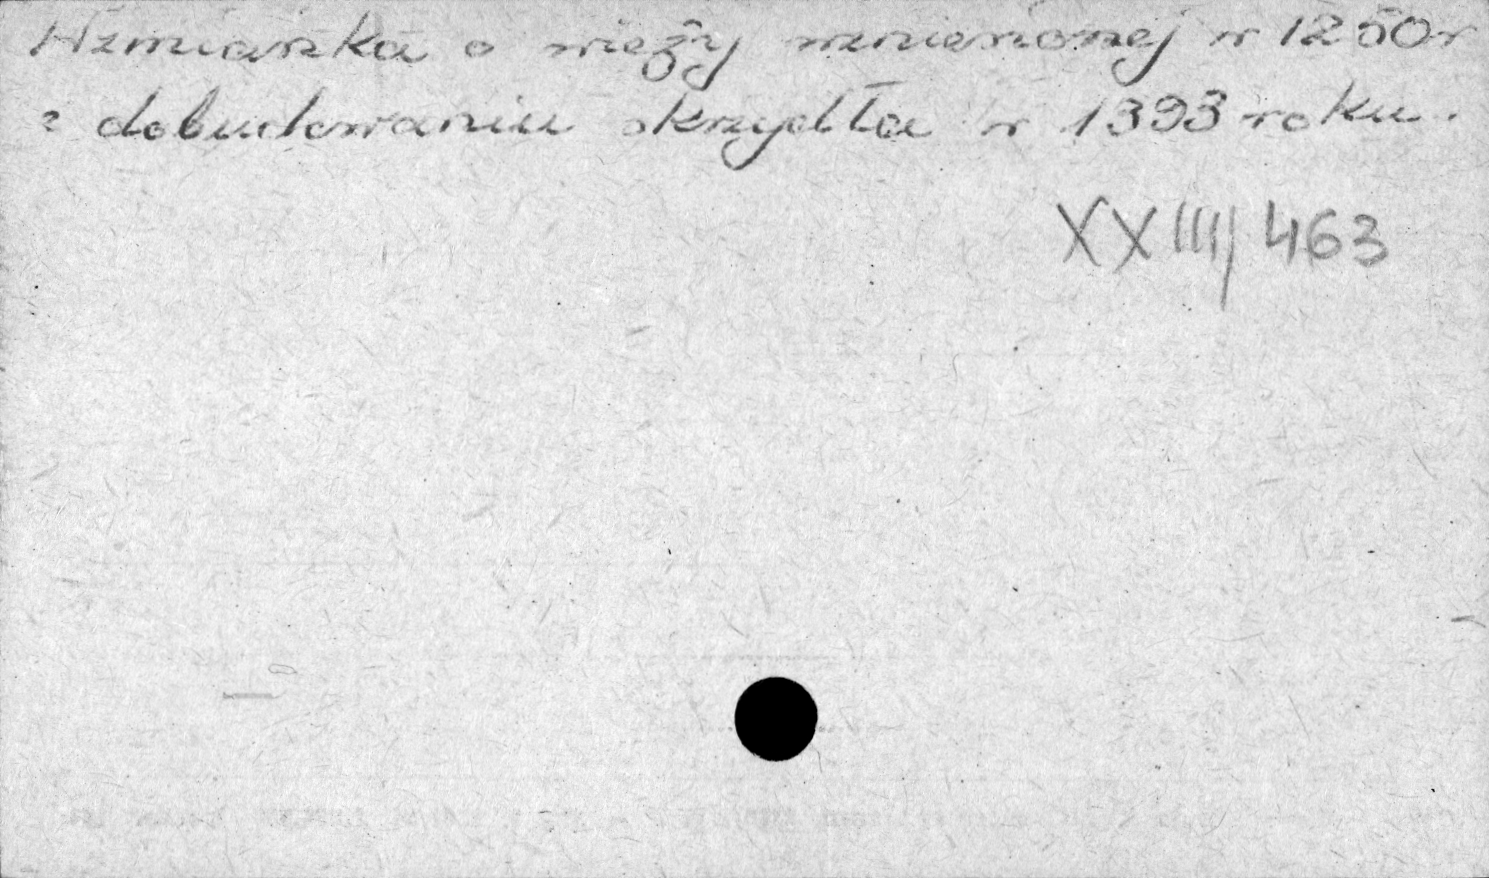 Wzmianka o wieży wzniesionej w 1250 r
i dobudowaniu skrzydła w 1393 roku.
XXIIII/463